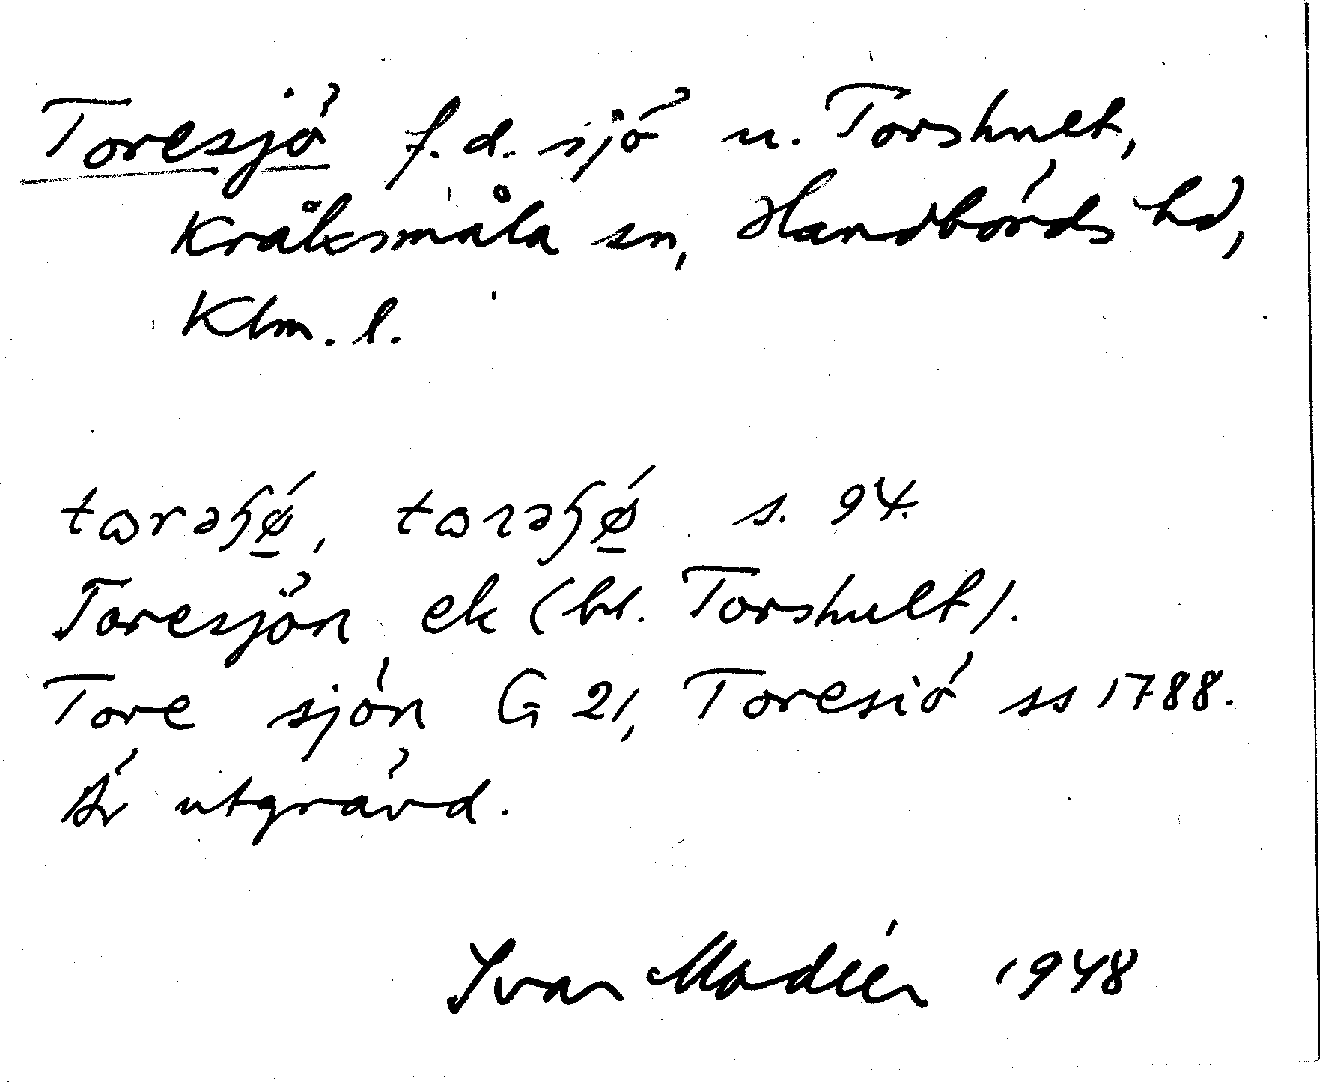 Toresjö f.d. sjö u. Torshult,
Kråksmåla sn, Handbörds hd,
Klm. l.
s. 94.
Toresjön ek (bl. Torshult).
Tore sjön G 21, Toresiö ss 1788.
Är utgrävd.
Ivar Modéer 1948